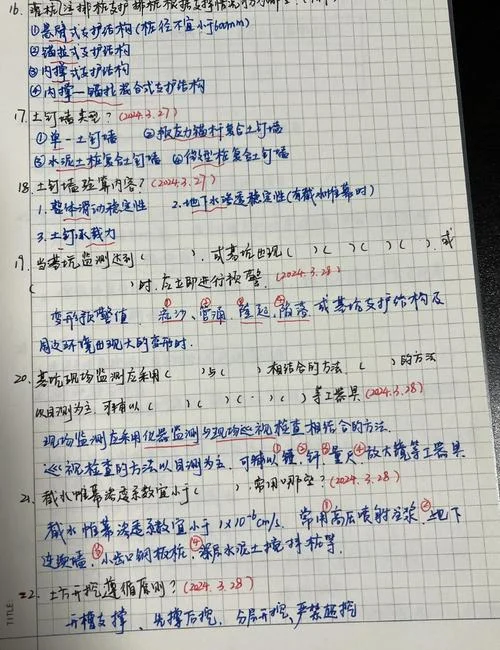 16. 灌注排桩支护 排桩根据支撑情况可分哪些?
①悬臂式支护结构(桩径不宜小于600mm)
②锚拉式支护结构
③内撑式支护结构
④内撑—锚拉混合式支护结构
17. 土钉墙类型? (2024.3.27)
①单一土钉墙 ②预应力锚杆复合土钉墙
③水泥土桩复合土钉墙 ④微型桩复合土钉墙
18. 土钉墙验算内容? (2024.3.27)
1. 整体滑动稳定性 2. 地下水渗透稳定性(有截水帷幕时)
3. 土钉承载力
19. 当基坑监测达到( ), 或基坑出现( )( )( )( ), 或
( )时, 应立即进行预警. (2024.3.28)
变形预警值 ①流沙、②管涌、③隆起、④陷落 或基坑支护结构及
周边环境出现大的变形时.
20. 基坑现场监测应采用( )与( )相结合的方法 ( )的方法
以目测为主 可辅以( )( )( )( )等工器具 (2024.3.28)
现场监测应采用仪器监测与现场巡视检查相结合的方法.
巡视检查的方法以目测为主, 可辅以①锤、②钎、③量尺、④放大镜等工器具
21. 截水帷幕渗透系数宜小于( ), 常用哪些? (2024.3.28)
截水帷幕渗透系数宜小于1×10⁻⁶cm/s. 常用①高压喷射注浆、②地下
连续墙、③小齿口钢板桩、④深层水泥土搅拌桩等.
22. 土方开挖遵循原则? (2024.3.28)
开槽支撑、先撑后挖、分层开挖、严禁超挖
TITLE: